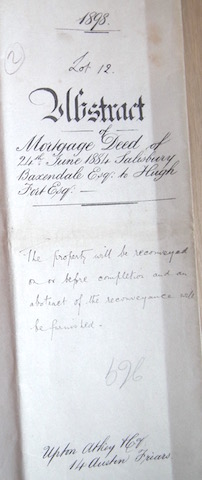 1898.
2
Lot 12.
Abstract
of
Mortgage Deed of
24th June 1884 Salesbury
Baxendale Esq. to Hugh
Fort Esq. —
The property will be reconveyed
on or before completion and an
abstract of the reconveyance will
be furnished.
Upton Atkey &Co
14 Austin Friars.